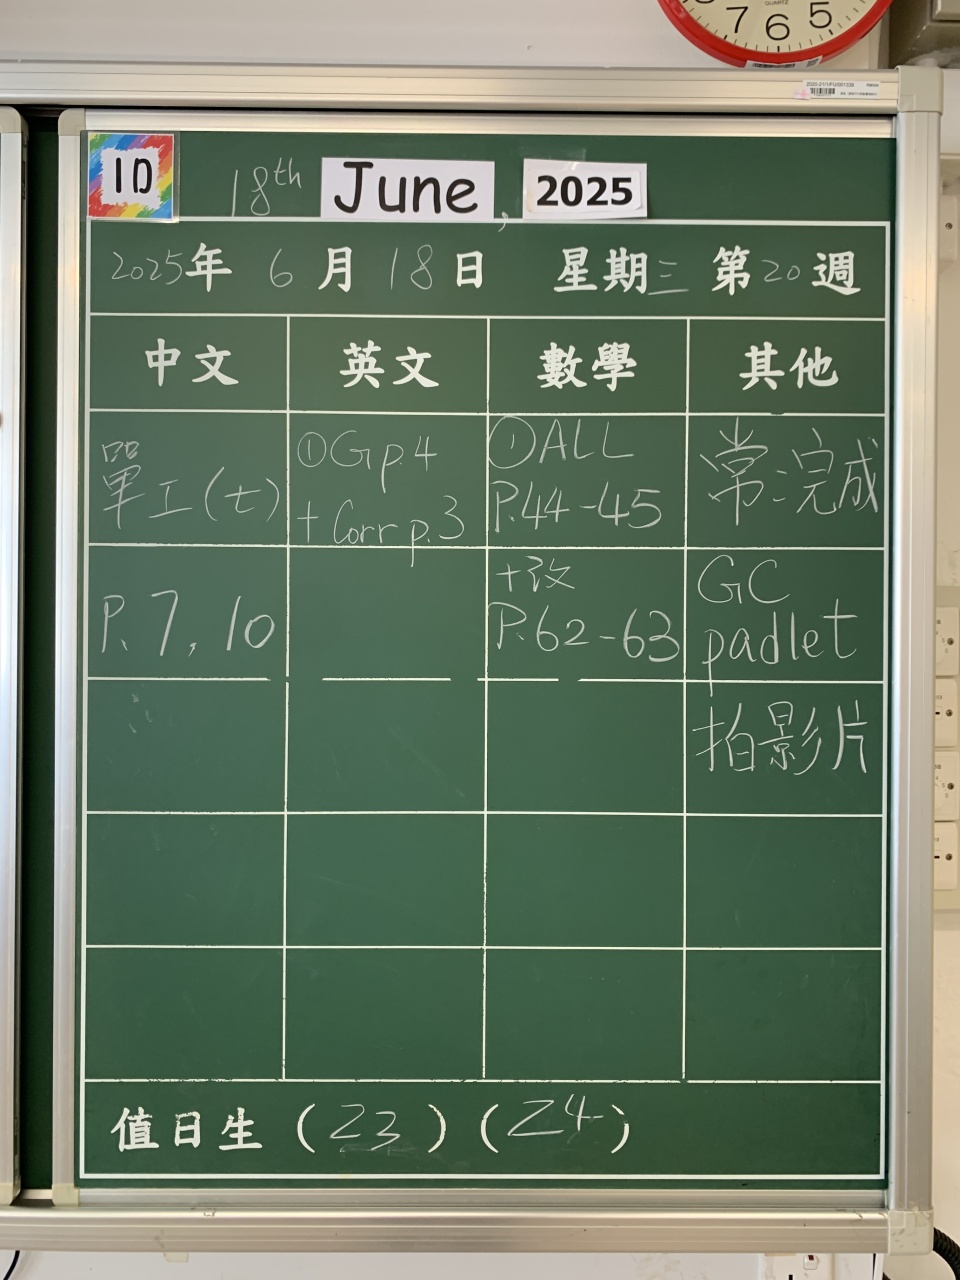 7 6 5
QUARTZ
1D
18th June, 2025
2025年 6月 18日 星期三 第20週
中文 英文 數學 其他
單工(七) ①G p.4 ①ALL 常:完成
+ Corr p.3 P.44-45
P.7, 10 +改 GC
P.62-63 padlet
拍影片
值日生 (23) (24)